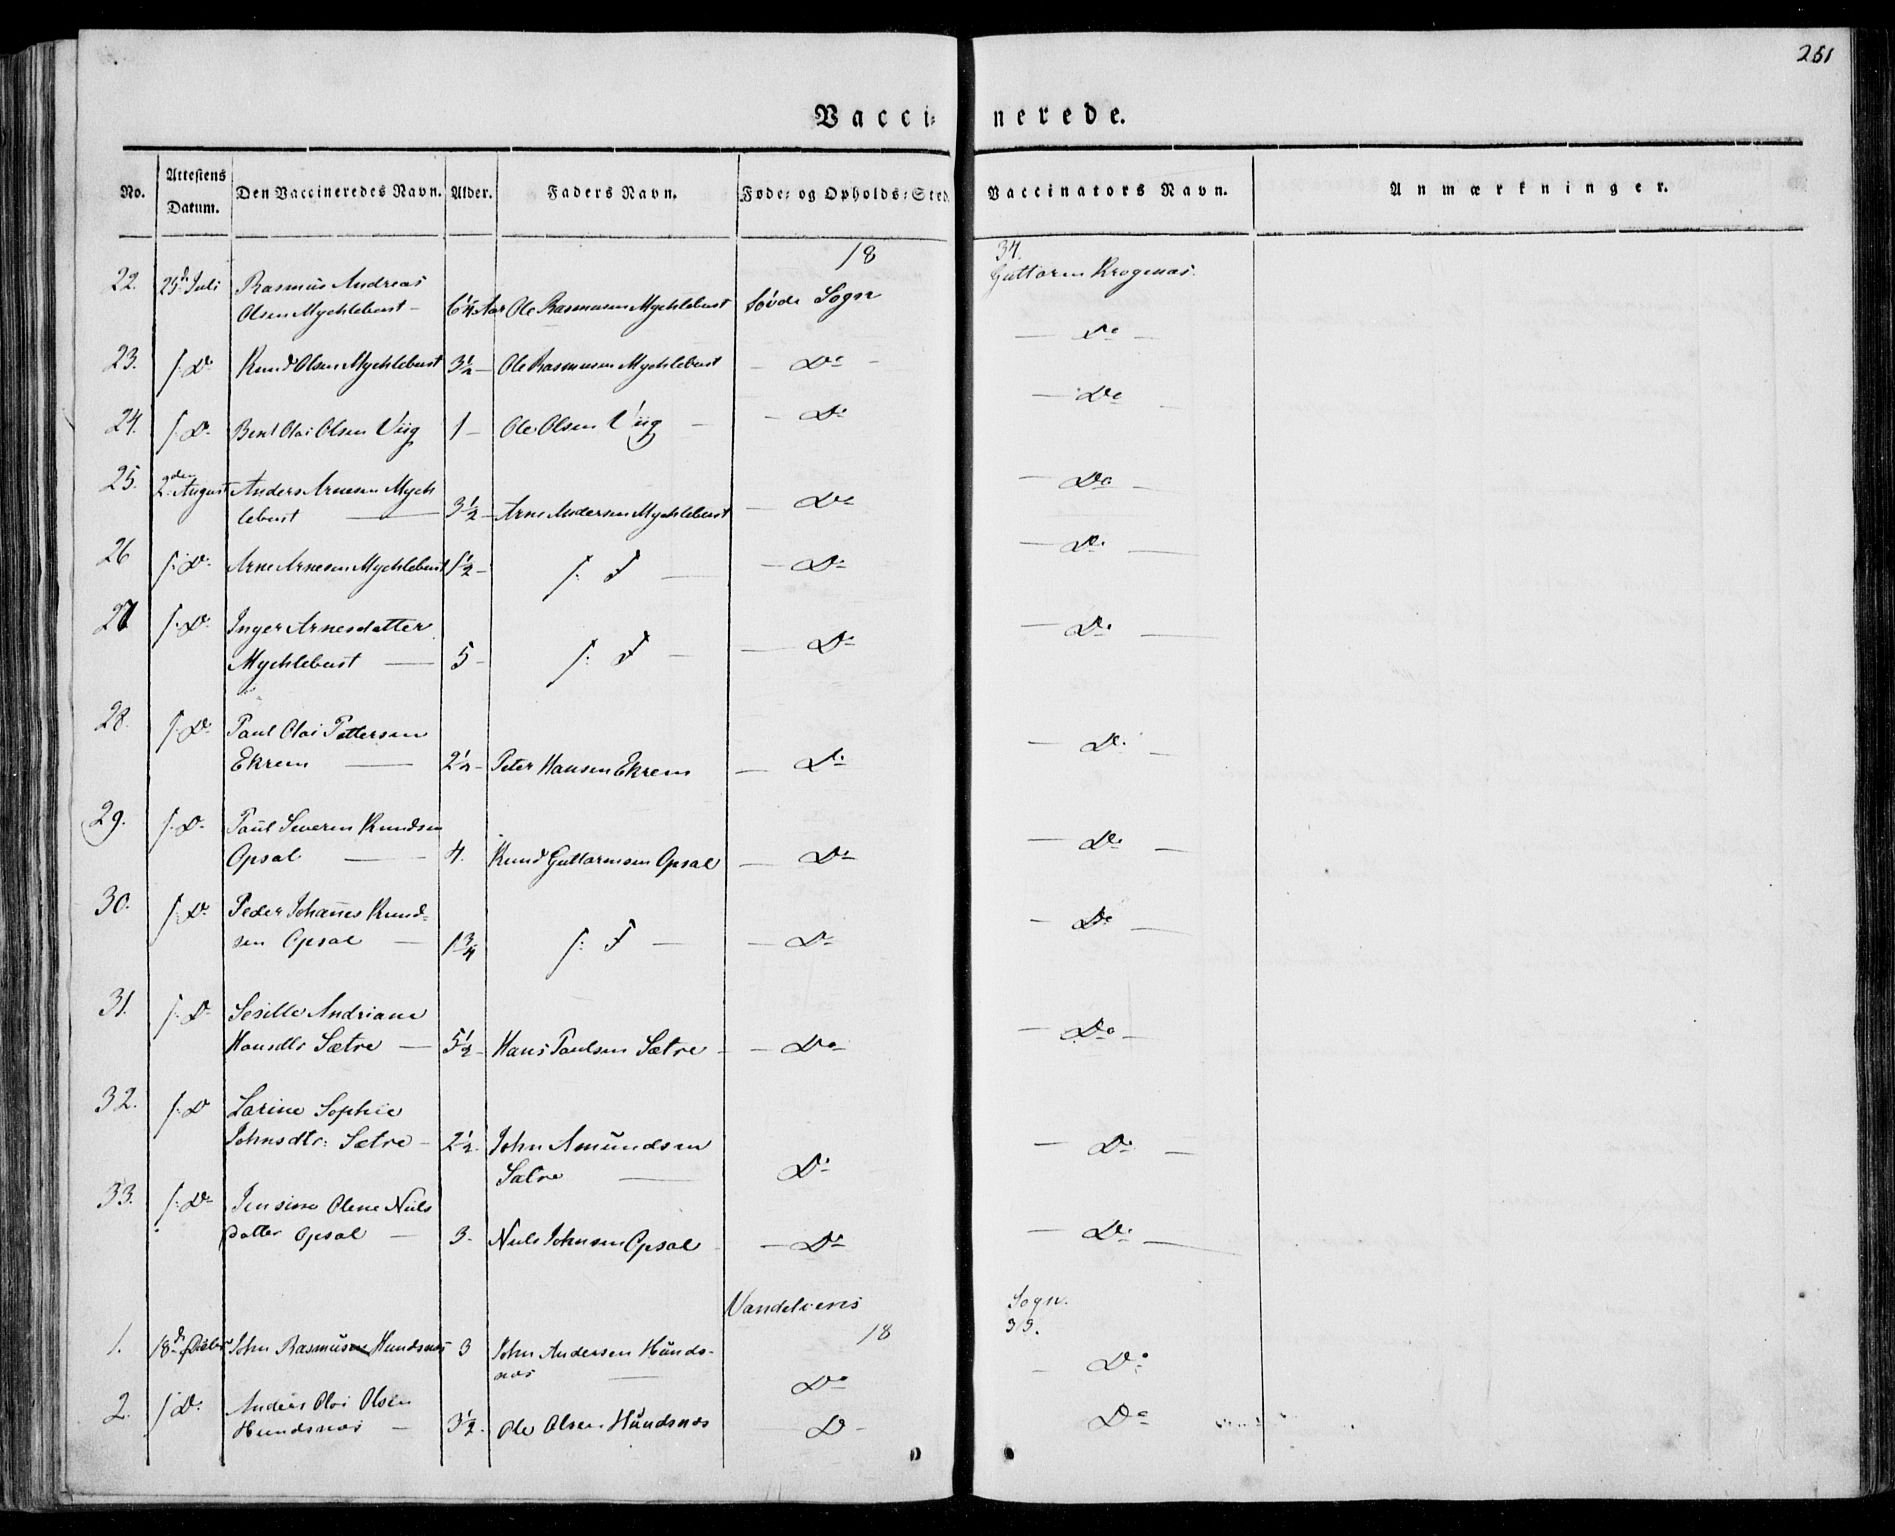 251
Vacci- nerede.
No. Attestens Datum. Den Vaccineredes Navn. Alder. Faders Navn. Føde- og Opholds-Sted. Vaccinators Navn. Anmærkninger.
18 34.
22. 25d Juli Rasmus Andreas Guttorm Krogenæs.
Olsen Mychlebust - 6 1/4 Aar Ole Rasmusen Mychlebust Søvde Sogn
— Do —
23. f. D. Knud Olsen Mychlebust 3 1/2 — Ole Rasmusen Mychlebust — Do —
— Do —
24. f. D. Bent Oloi Olsen Viig 1 — Ole Olsen Viig — — Do
25. 2den August Anders Arnesen Mych — Do —
lebust — 3 1/2 — Arne Andersen Mychlebust — Do
26 f. D. Arne Arnesen Mychlebust 1 1/2 — f. F — — Do — Do —
27 f. D. Inger Arnesdatter — Do —
Mychlebust — 5 — f. F — — Do
28. f. D. Paul Oloi Pettersen — Do —
Ekrem — 2 1/2 — Peter Hansen Ekrem — Do
29. f. D. Paul Severin Knudsen — Do —
Opsal — 4. Knud Guttormsen Opsal — Do
30. f. D. Peder Johannes Knud- — Do —
sen Opsal — 1 3/4 f. F — — Do
31. f. D Sesille Andriane — Do —
Hansdtr Sætre — 5 1/2 — Hans Paulsen Sætre — — Do
32. f. D Larine Sophie
Johnsdtr: Sætre — 2 1/2. John Amundsen — Do —
Sætre — Do
33. f. D Jensine Olene Niels
datter Opsal — 3. Niels Johnsen Opsal — Do — Do —
Vandelvens Sogn.
18 35.
1. 18d John Rasmus Hundsnæs 3 John Andersen Hunds- — Do
næs — Do
2. f D. Anders Oloi Olsen
Hundsnæs — 3 1/2. Ole Olsen Hundsnæs D — Do